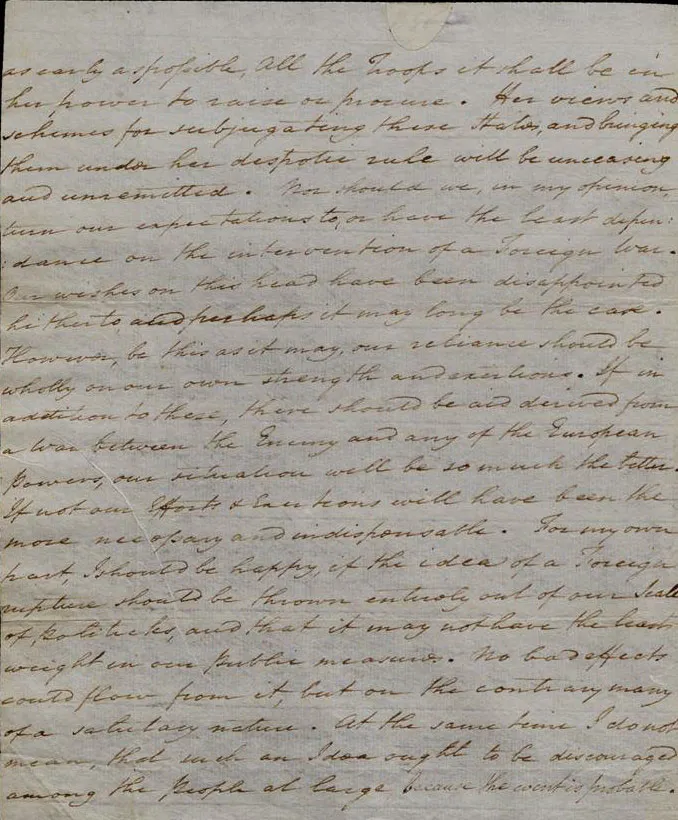 as early as possible, All the Troops it shall be in
her power to raise or procure. Her views and
schemes for subjugating these States, and bringing
them under her despotic rule will be unceasing
and unremitted. Nor should we, in my opinion,
turn our expectations to, or have the least depen:
:dance on the intervention of a Foreign War.
Our wishes on this head have been disappointed
hitherto, and perhaps it may long be the case.
However, be this as it may, our reliance should be
wholly on our own strength and exertions. If in
addition to these, there should be aid derived from
a War between the Enemy and any of the European
Powers, our situation will be so much the better.
If not our Efforts & Exertions will have been the
more necessary and indispensable. For my own
part, I should be happy, if the idea of a Foreign
rupture should be thrown entirely out of our Scale
of politicks, and that it may not have the least
weight in our public measures. No bad effects
could flow from it, but on the contrary many
of a salutary nature. At the same time I do not
mean, that such an Idea ought to be discouraged
among the People at large because the event is probable.